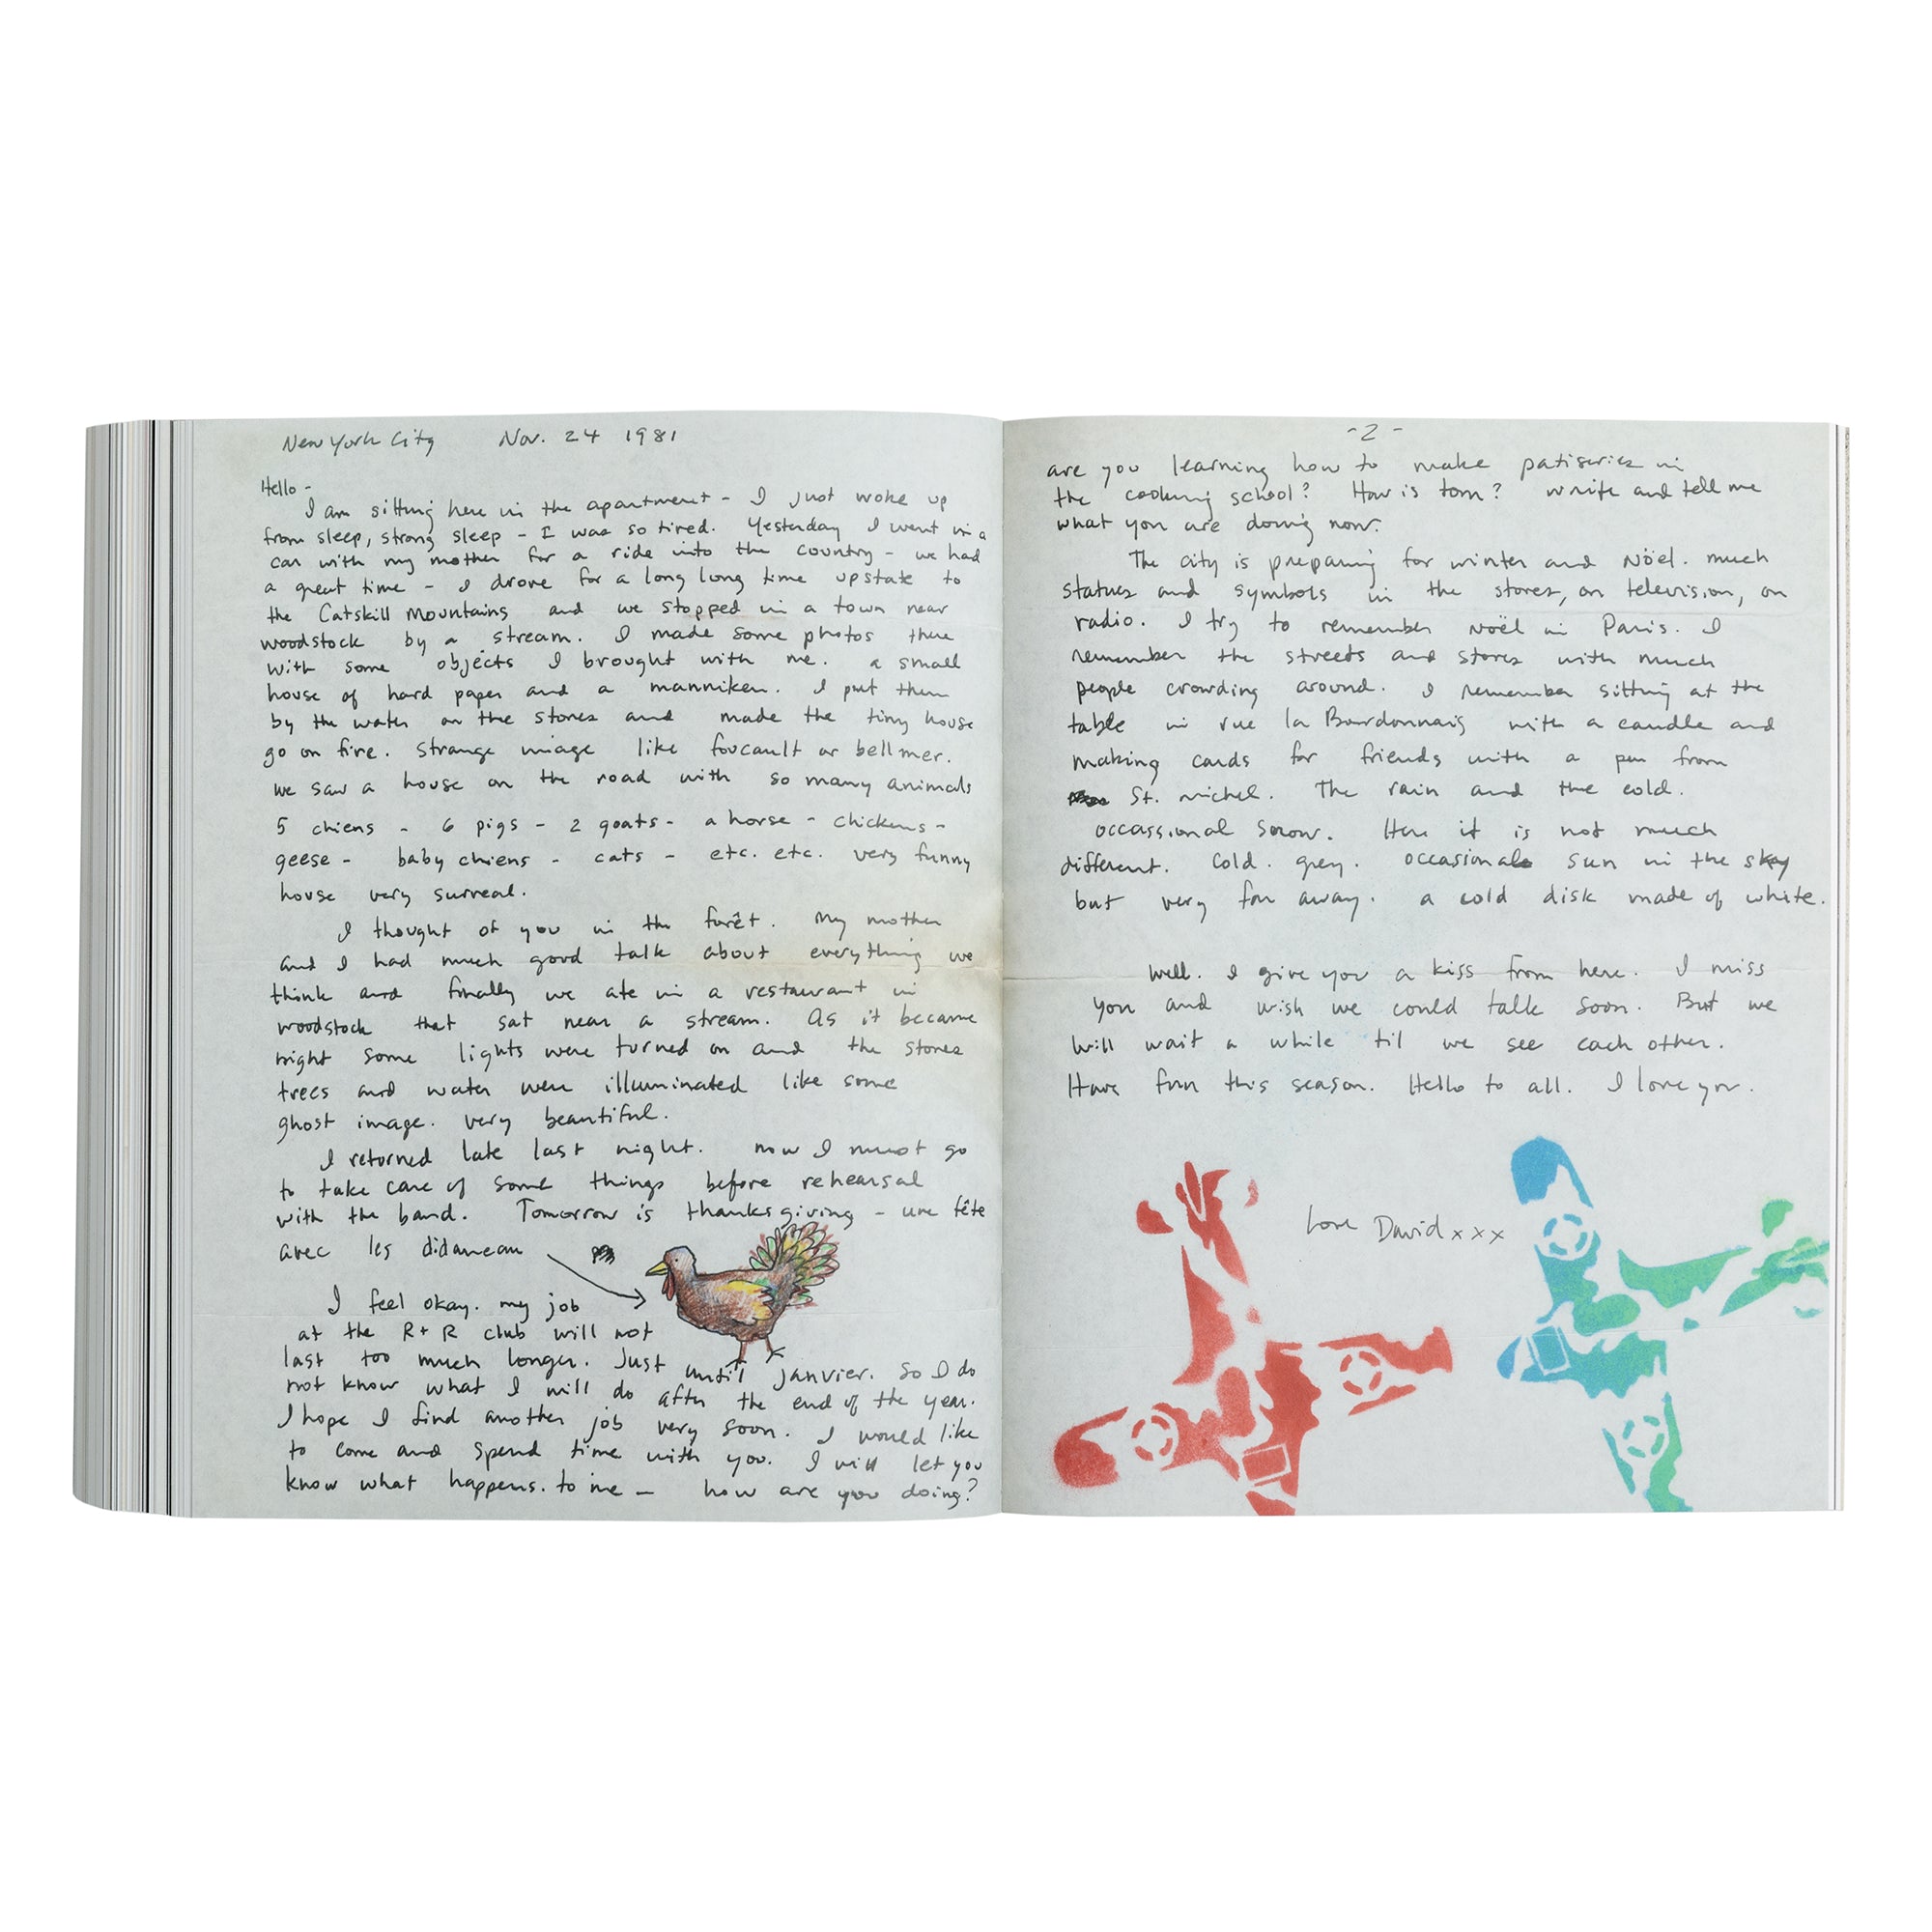 New York City Nov. 24 1981
Hello -
I am sitting here in the apartment - I just woke up
from sleep, strong sleep - I was so tired. Yesterday I went in a
car with my mother for a ride into the country - we had
a great time - I drove for a long long time upstate to
the Catskill Mountains and we stopped in a town near
woodstock by a stream. I made some photos there
with some objects I brought with me. a small
house of hard paper and a manniken. I put them
by the water on the stones and made the tiny house
go on fire. Strange image like foucault or bellmer.
we saw a house on the road with so many animals
5 chiens - 6 pigs - 2 goats - a horse - chickens -
geese - baby chiens - cats - etc. etc. very funny
house very surreal.
I thought of you in the forêt. My mother
and I had much good talk about everything we
think and finally we ate in a restaurant in
woodstock that sat near a stream. As it became
night some lights were turned on and the stones
trees and water were illuminated like some
ghost image. very beautiful.
I returned late last night. now I must go
to take care of some things before rehearsal
with the band. Tomorrow is thanksgiving - une fête
avec les didaneau
I feel okay. my job
at the R+R club will not
last too much longer. Just until janvier. So I do
not know what I will do after the end of the year.
I hope I find another job very soon. I would like
to come and spend time with you. I will let you
know what happens. to me - how are you doing?
-2-
are you learning how to make patiseries in
the cooking school? How is tom? write and tell me
what you are doing now.
The city is preparing for winter and Nöel. much
statues and symbols in the stores, on television, on
radio. I try to remember Noël in Paris. I
remember the streets and stores with much
people crowding around. I remember sitting at the
table in rue la Bourdonnais with a candle and
making cards for friends with a pen from
St. michel. The rain and the cold.
occassional snow. Here it is not much
different. Cold. grey. occasional sun in the sky
but very far away. a cold disk made of white.
Well. I give you a kiss from here. I miss
you and wish we could talk soon. But we
will wait a while til we see each other.
Have fun this season. Hello to all. I love you.
Love David xxx